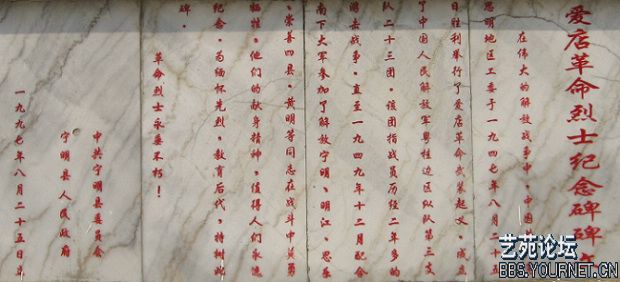 爱店革命烈士纪念碑碑
在伟大的解放战争中，中国
思明地区工委于一九四七年八月二十五
日胜利举行了爱店革命武装起义。成立
了中国人民解放军粤桂边区纵队第三支
队二十三团。该团指战员历经二年多的
游击战争，直至一九四九年十二月配合
南下大军参加了解放宁明、明江、思乐
、崇善四县。黄明等同志在战斗中英勇
牺牲。他们的献身精神，值得人们永远
纪念。为缅怀先烈，教育后代，特树此
碑。
革命烈士永垂不朽！
中共宁明县委员会
宁明县人民政府
一九九七年八月二十五日立
艺苑论坛
BBS.YOURNET.CN